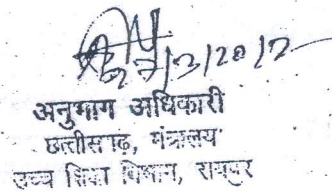 27/3/2012
अनुभाग अधिकारी
छत्तीसगढ़, मंत्रालय
उच्च शिक्षा विभाग, रायपुर